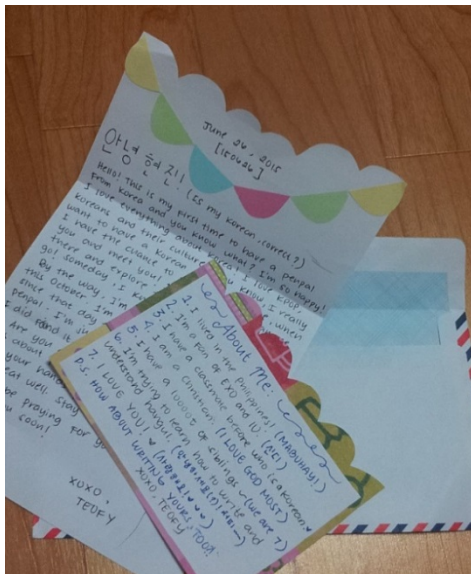 June 26, 2015
[150626]
안녕 현진! (Is my korean correct?)
Hello! This is my first time to have a penpal
from Korea and you know what? I'm so happy!
I love everything about Korea. I love KPOP,
koreans and their culture. I know, I really
want to have a korean
I have the chance to when
you and meet you! I
there and explore
got someday, I
By the way, I'm
this October. I'm
since that day
penpal. I'm ju
I did send it
Are you
about
your hand
ear well. Stay
be praying for yo
u soon!
XOXO,
TEUFY
About Me:
1. I lived in the Philippines! (MABUHAY!)
2. I'm a fan of EXO and IU. (NE!)
3. I have a classmate before who is a Korean.
4. I am a Christian. (I LOVE GOD MOST!)
5. I have a 10000t of siblings (We are 7)
6. I'm trying to learn how to write and
understand hangul.
7. I LOVE YOU! ♥ (사랑해요! ♥♥♥)
P.S. HOW ABOUT WRITING YOURS, TOO?
XOXO, TEUFY